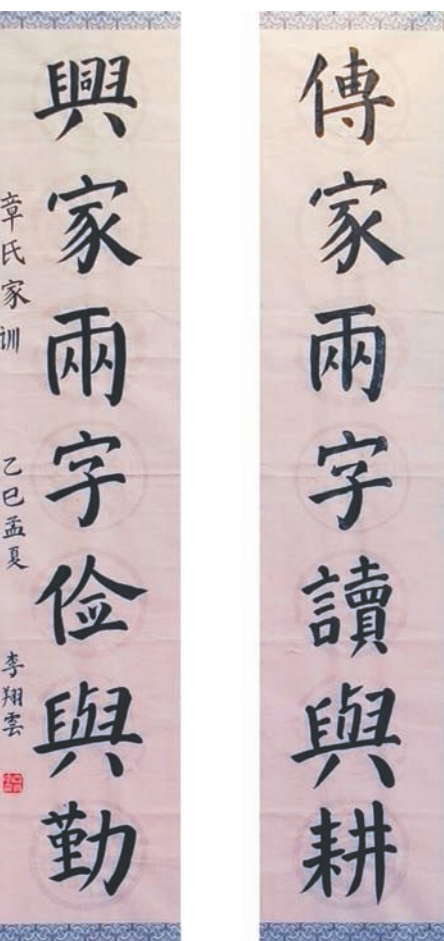 傳家兩字讀與耕
興家兩字俭與勤
章氏家训
乙巳孟夏
李翔雲